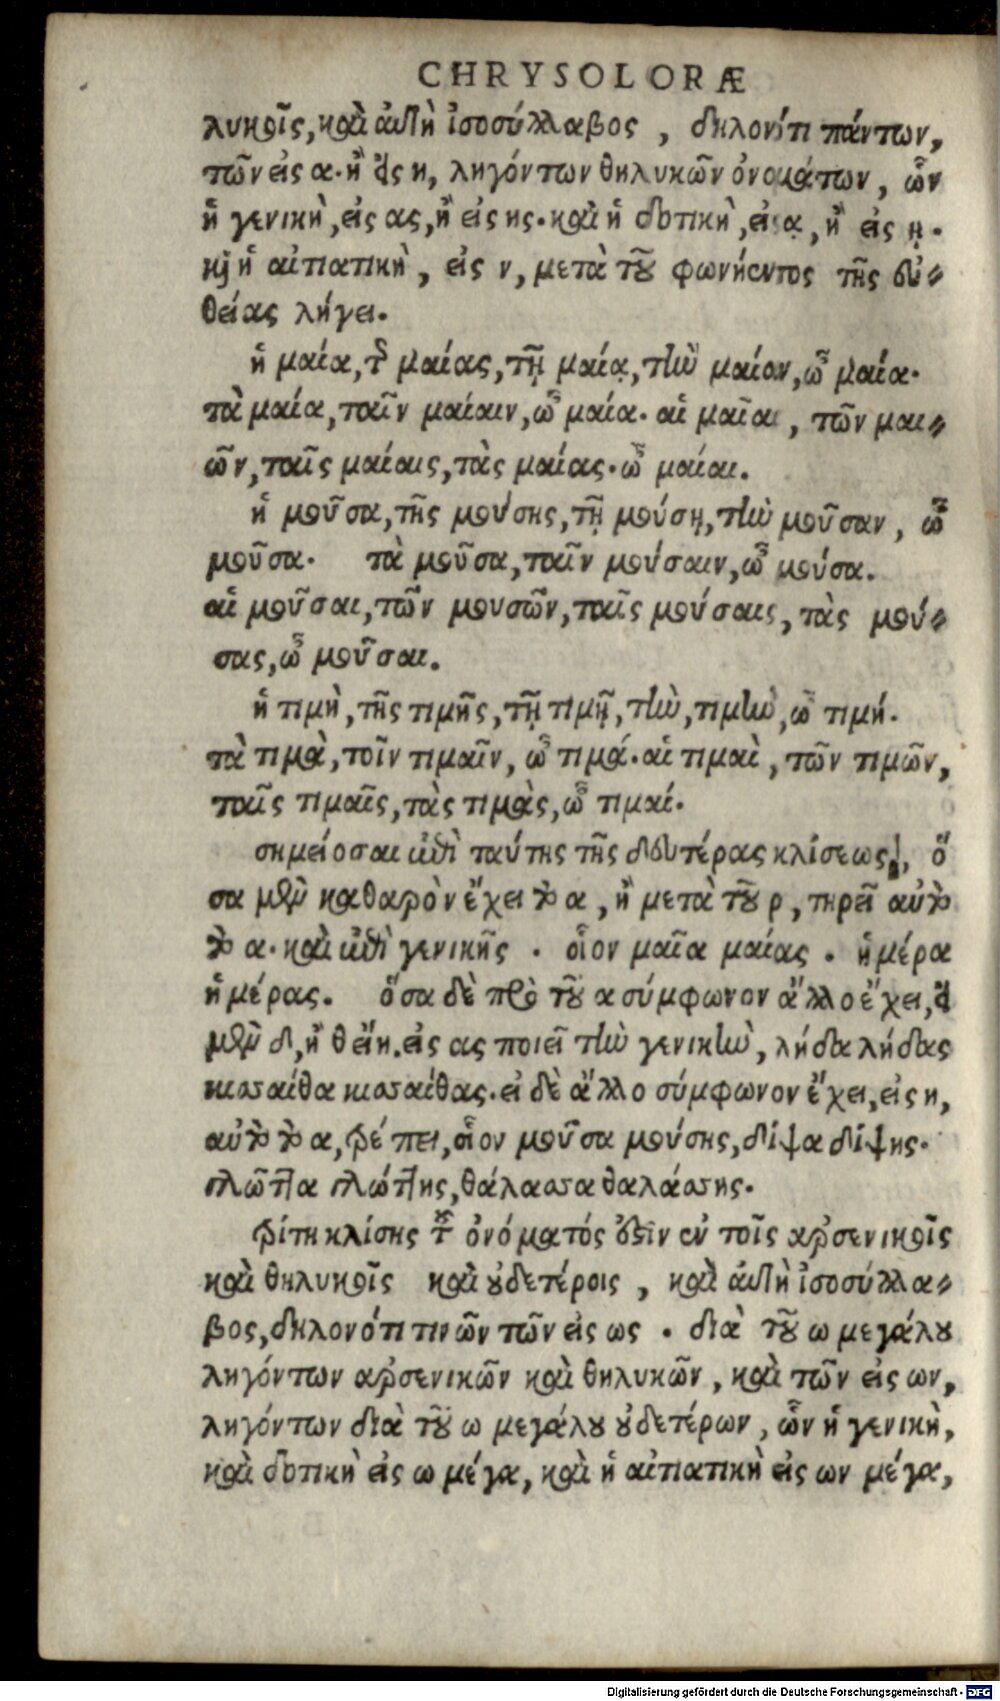 CHRYSOLORÆ
λυκοῖς, καὶ αὐτὴ ἰσοσύλλαβος, δηλονότι πάντων,
τῶν εἰς α. ἢ εἰς η, ληγόντων θηλυκῶν ὀνομάτων, ὧν
ἡ γενικὴ, εἰς ας, ἢ εἰς ης. καὶ ἡ δοτικὴ, εἰς ᾳ, ἢ εἰς ῃ.
καὶ ἡ αἰτιατικὴ, εἰς ν, μετὰ τοῦ φωνήεντος τῆς εὐ-
θείας λήγει.
ἡ μαία, τῆς μαίας, τῇ μαίᾳ, τὴν μαίαν, ὦ μαία.
τὰ μαία, ταῖν μαίαιν, ὦ μαία. αἱ μαῖαι, τῶν μαι-
ῶν, ταῖς μαίαις, τὰς μαίας. ὦ μαίαι.
ἡ μοῦσα, τῆς μούσης, τῇ μούσῃ, τὴν μοῦσαν, ὦ
μοῦσα. τὰ μοῦσα, ταῖν μούσαιν, ὦ μούσα.
αἱ μοῦσαι, τῶν μουσῶν, ταῖς μούσαις, τὰς μού-
σας, ὦ μοῦσαι.
ἡ τιμὴ, τῆς τιμῆς, τῇ τιμῇ, τὴν, τιμὴν, ὦ τιμή.
τὰ τιμὰ, τοῖν τιμαῖν, ὦ τιμά. αἱ τιμαὶ, τῶν τιμῶν,
ταῖς τιμαῖς, τὰς τιμὰς, ὦ τιμαί.
σημείοσαι ἐπὶ ταύτης τῆς δευτέρας κλίσεως, ὅ
σα μὲν καθαρὸν ἔχει τὸ α, ἢ μετὰ τοῦ ρ, τηρεῖ αὐτὸ
τὸ α. καὶ ἐπὶ γενικῆς. οἷον μαῖα μαίας. ἡμέρα
ἡμέρας. ὅσα δὲ πρὸ τοῦ α σύμφωνον ἄλλο ἔχει, εἰ
μὲν δ, ἢ θ εἴη. εἰς ας ποιεῖ τὴν γενικὴν, λήδα λήδας
κισσαίθα κισσαίθας. εἰ δὲ ἄλλο σύμφωνον ἔχει, εἰς η,
αὐτὸ τὸ α, τρέπει, οἷον μοῦσα μούσης, δίψα δίψης.
πλῶττα πλώττης, θάλασσα θαλάσσης.
τρίτη κλίσης τῶν ὀνόματός ἐστὶν ἐν τοῖς ἀρσενικοῖς
καὶ θηλυκοῖς καὶ οὐδετέροις, καὶ αὐτὴ ἰσοσύλλα-
βος, δηλονότι τινῶν τῶν εἰς ως. διὰ τοῦ ω μεγάλου
ληγόντων ἀρσενικῶν καὶ θηλυκῶν, καὶ τῶν εἰς ων,
ληγόντων διὰ τοῦ ω μεγάλου οὐδετέρων, ὧν ἡ γενικὴ,
καὶ δοτικὴ εἰς ω μέγα, καὶ ἡ αἰτιατικὴ εἰς ων μέγα,
Digitalisierung gefördert durch die Deutsche Forschungsgemeinschaft - DFG